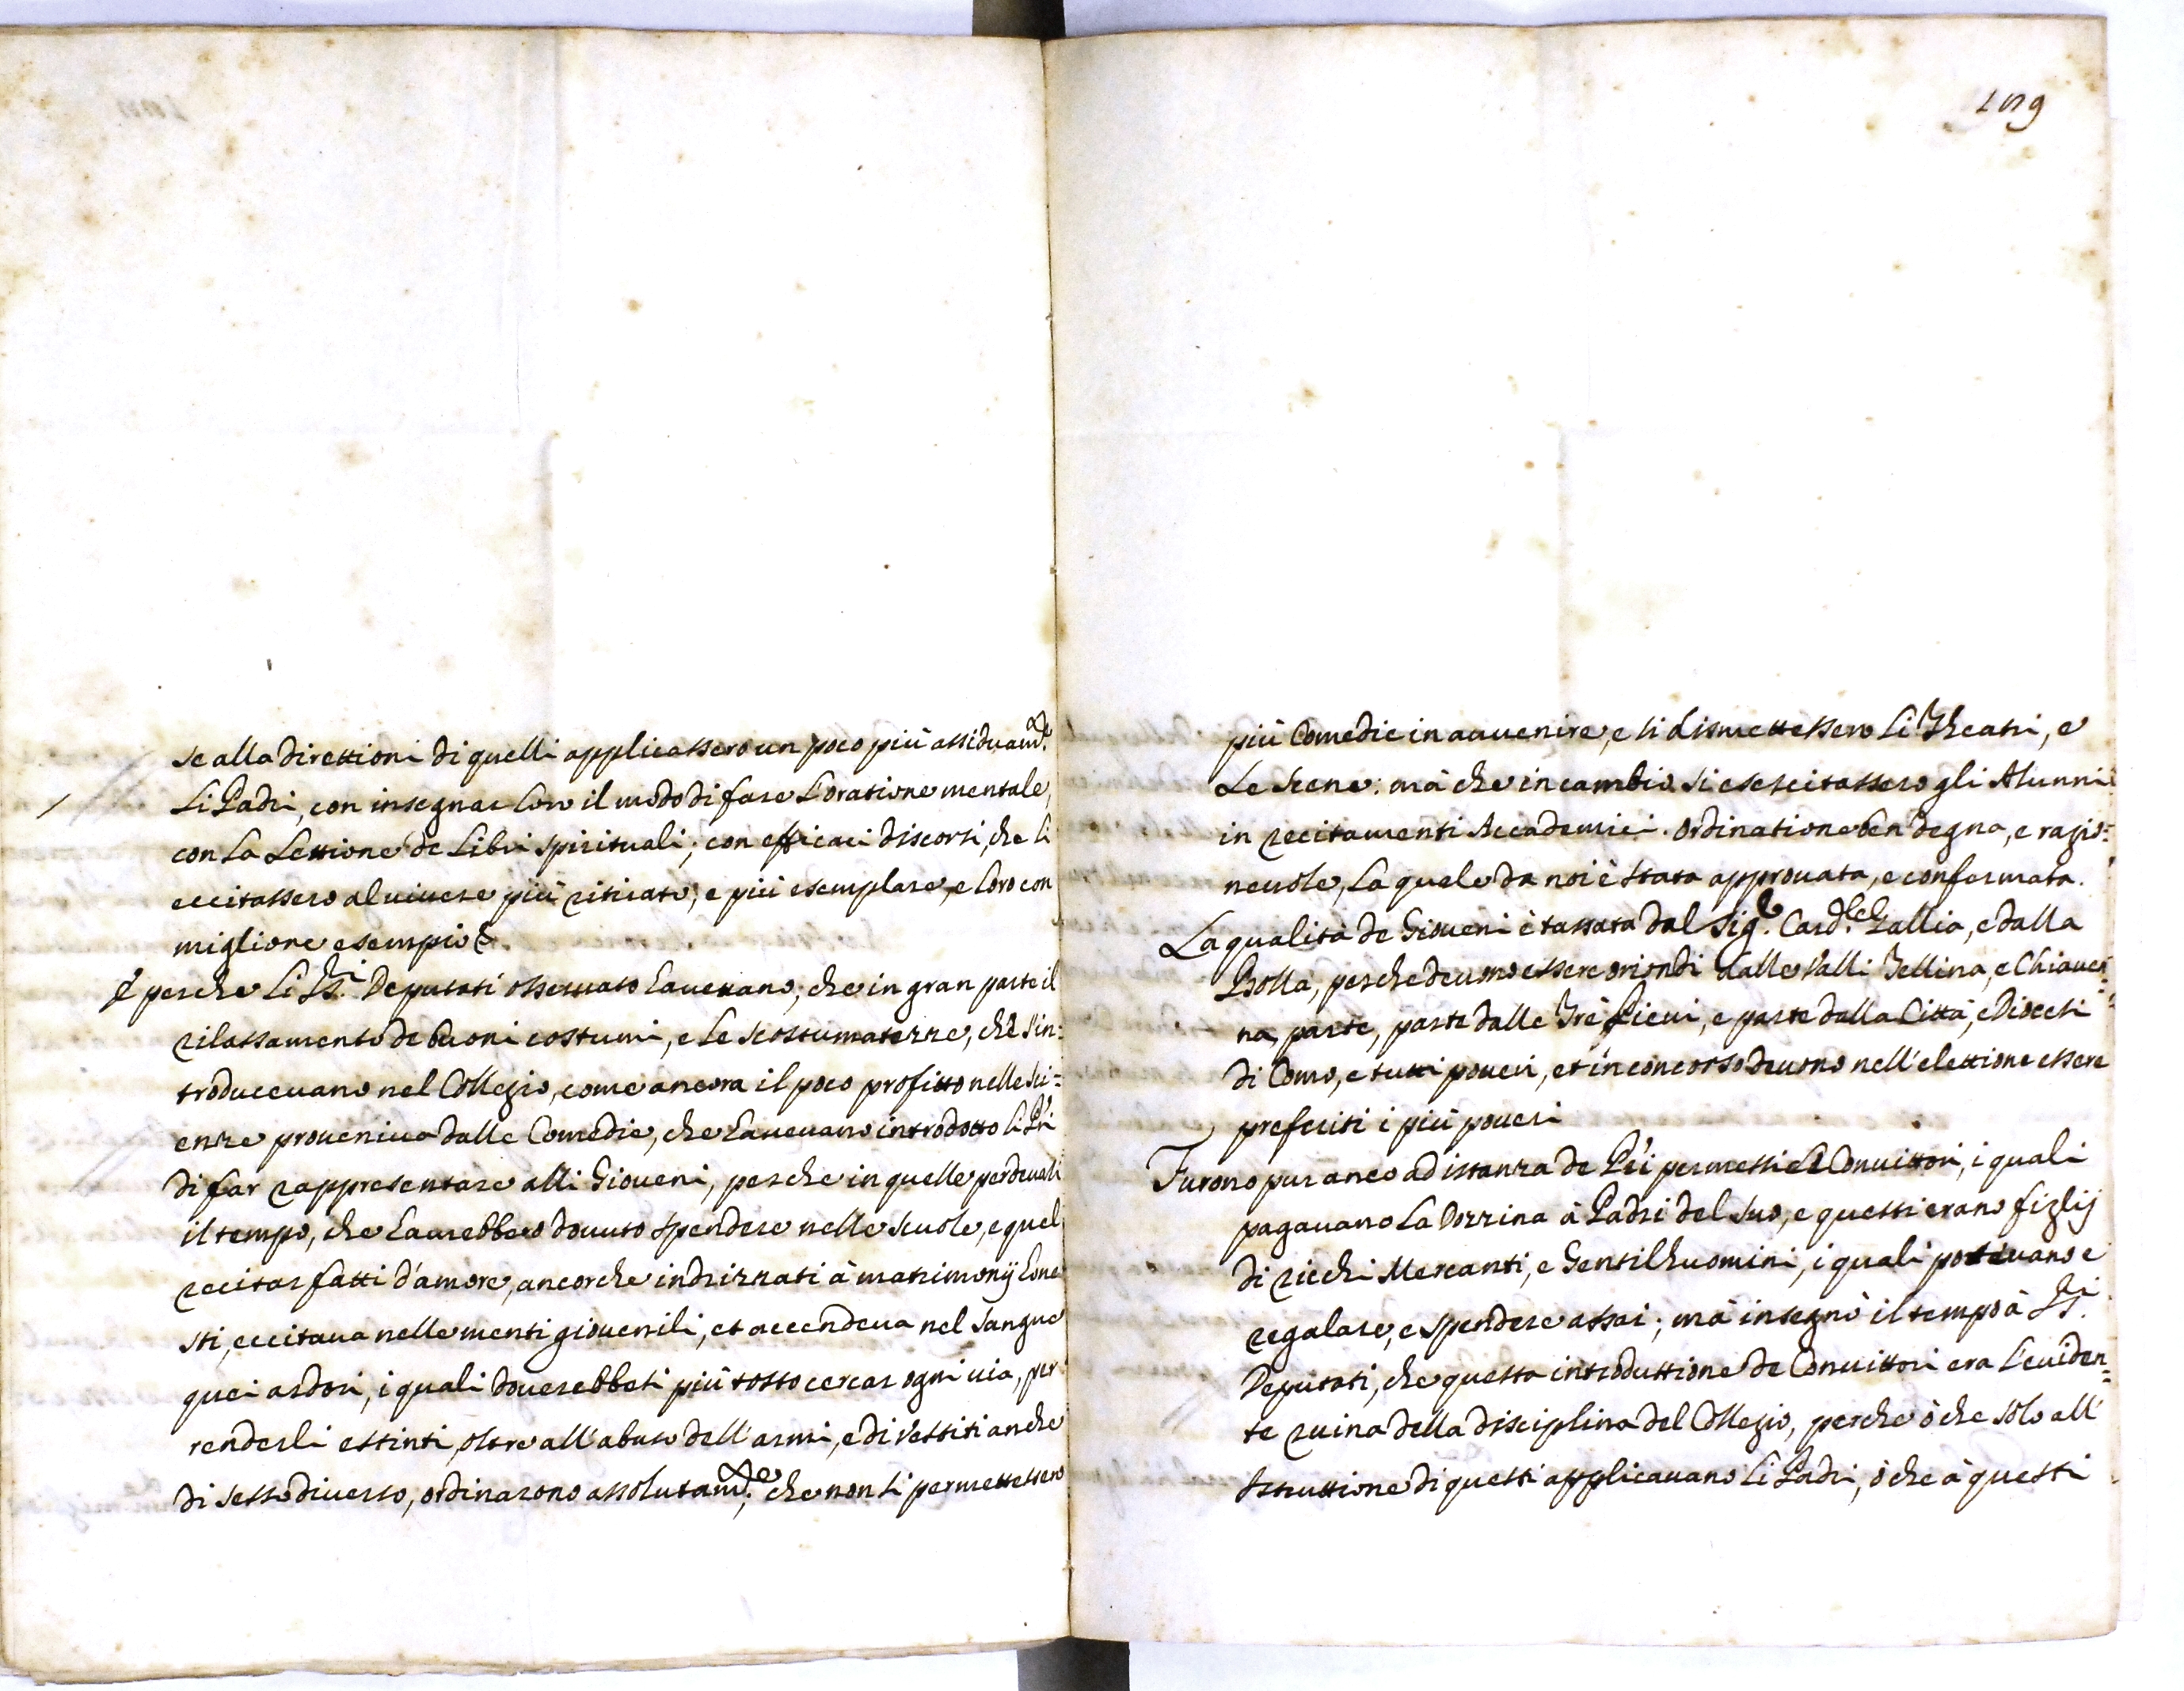 se alla direttioni di quelli applicassero un poco più assiduam.te
Li Padri, con insegnar Loro il modo di fare L'oratione mentale,
con La Lettione de Libri spirituali; con efficaci discorsi, che li
eccitassero al uiuere più ritirato, e più esemplare, e Loro con
migliore esempio &
E perche Li SS.ri Deputati osseruato haueuano, che in gran parte il
rilassamento de buoni costumi, e Le scostumatezze, che s'in=
troduceuano nel Collegio, come ancora il poco profitto nelle sci=
enze proueniua dalle Comedie, che haueuano introdotto li PP.ri
di far rappresentare alli Gioueni, perche in quelle perdeuasi
il tempo, che haurebbero douuto spendere nelle scuole, e quel
recitar fatti d'amore, ancorche indrizzati à matrimonij hone
sti, eccitaua nelle menti giouenili, et accendeua nel sangue
quei ardori, i quali douerebbesi più tosto cercar ogni uia, per
renderli estinti, oltre all'abuso dell'armi, e di Vestiti anche
di sesso diuerso, ordinarono assolutam.te, che non si permettessero
109
più Comedie in auuenire, e si dismettessero Li Theatri, e
Le Scene: mà che in cambio si esercitassero gli Alunni
in recitamenti Accademici. Ordinatione ben degna, e ragio=
neuole, La quale da noi è stata approuata, e confermata.
La qualità de Gioueni è tassata dal Sig.r Card.le Gallio, e dalla
Bolla, perche deuono essere oriondi dalle Valli Tellina, e Chiauen=
na, parte, parte dalle Trè Pieui, e parte dalla Città, e Diocesi
di Como, e tutti poueri, et in concorso deuono nell'elettione essere
preferiti i più poueri
Furono pur anco ad istanza de PP.ri permessi li Conuittori, i quali
pagauano La Dozzina à Padri del suo, e questi erano figlij
di ricchi Mercanti, e Gentilhuomini, i quali poteuano e
regalare, e spendere assai; mà insegnò il tempo à SS.ri
Deputati, che questa introduttione de Conuittori era L'euiden=
te ruina della disciplina del Collegio, perche ò che solo all'
Istruttione di questi applicauano Li Padri, ò che à questi